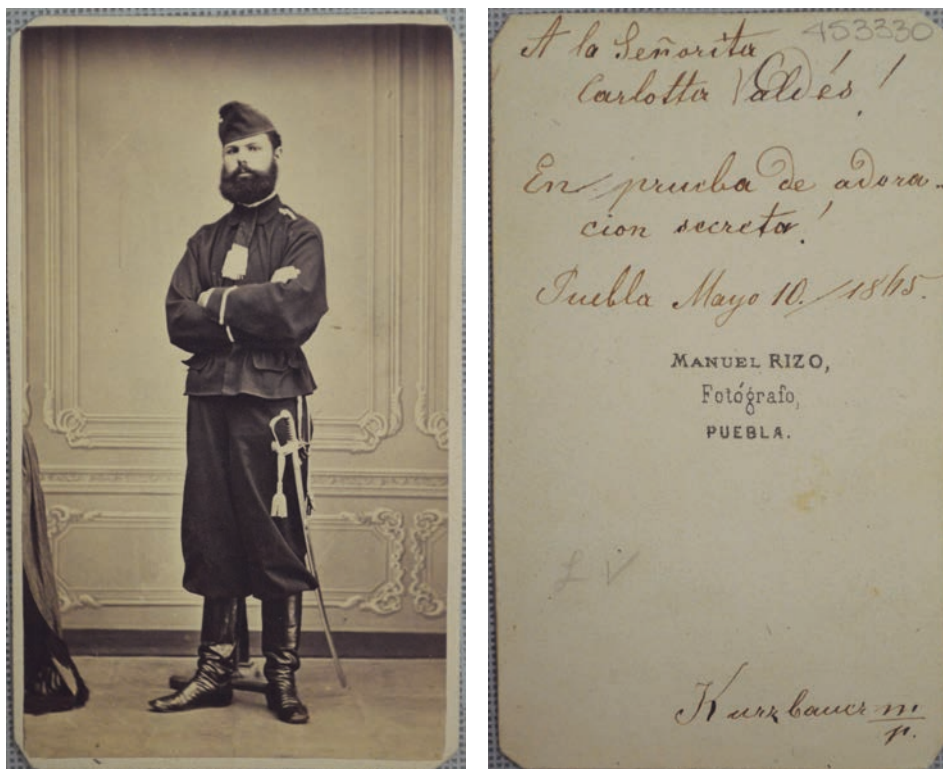 453330
A la Señorita
Carlotta Valdés!
En prueba de adora-
cion secreta!
Puebla Mayo 10./1865.
MANUEL RIZO,
Fotógrafo,
PUEBLA.
L V
Kurzbauer m/p.